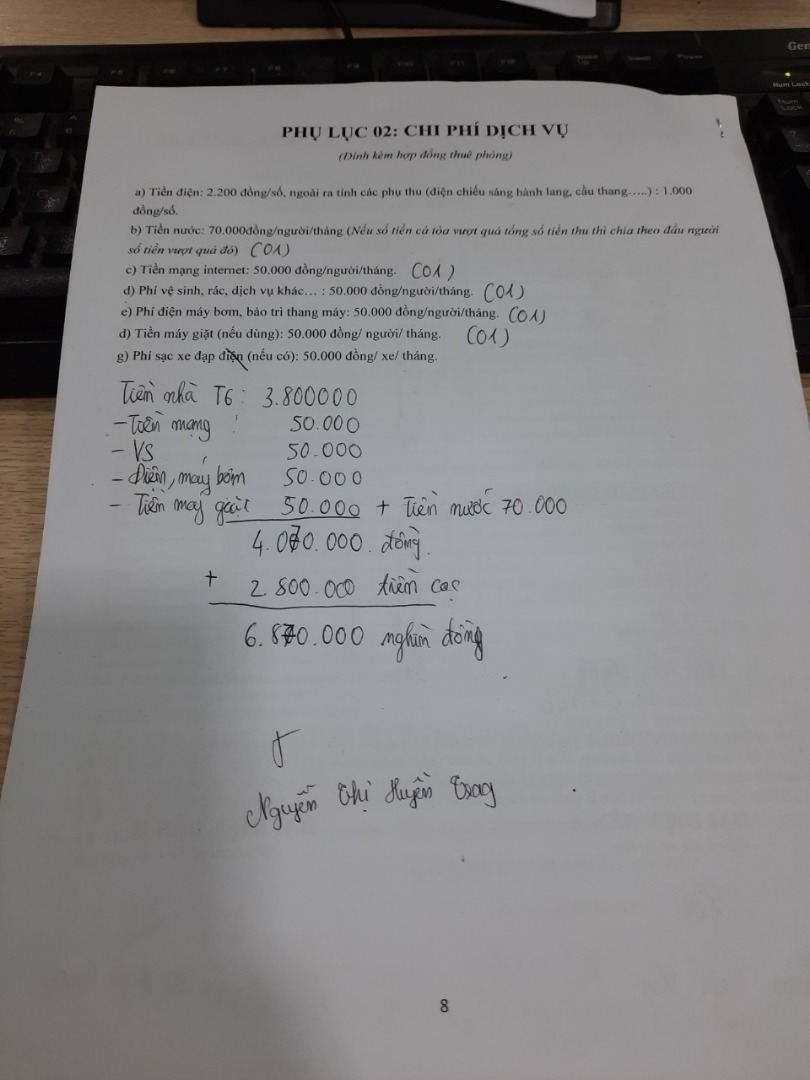 PHỤ LỤC 02: CHI PHÍ DỊCH VỤ
(Đính kèm hợp đồng thuê phòng)
a) Tiền điện: 2.200 đồng/số, ngoài ra tính các phụ thu (điện chiếu sáng hành lang, cầu thang…..) : 1.000
đồng/số.
b) Tiền nước: 70.000đồng/người/tháng (Nếu số tiền cả tòa vượt quá tổng số tiền thu thì chia theo đầu người
số tiền vượt quá đó) (01)
c) Tiền mạng internet: 50.000 đồng/người/tháng. (01)
d) Phí vệ sinh, rác, dịch vụ khác… : 50.000 đồng/người/tháng. (01)
e) Phí điện máy bơm, bảo trì thang máy: 50.000 đồng/người/tháng. (01)
d) Tiền máy giặt (nếu dùng): 50.000 đồng/ người/ tháng. (01)
g) Phí sạc xe đạp điện (nếu có): 50.000 đồng/ xe/ tháng.
Tiền nhà T6: 3.800000
- Tiền mạng : 50.000
- VS 50.000
- Điện, máy bơm 50.000
- Tiền máy giặt 50.000 + tiền nước 70.000
4.070.000. đồng.
+ 2.800.000 tiền cọc
6.870.000 nghìn đồng
Nguyễn Thị Huyền Trag
8
Num Lock